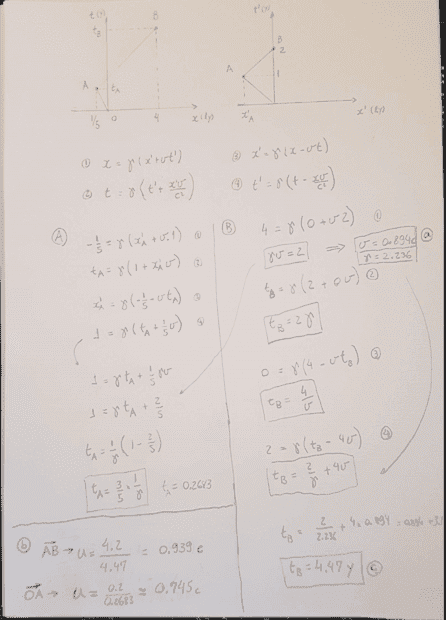 t(y)
B
t_B
A
t_A
1/5
0
4
x (ly)
t'(y)
B
2
A
1
x'_A
x' (ly)
① x = γ(x'+vt')
② t = γ(t' + x'v/c²)
③ x' = γ(x-vt)
④ t' = γ(t - xv/c²)
Ⓐ
-1/5 = γ(x'_A + v·1) ①
t_A = γ(1 + x'_A v) ②
x'_A = γ(-1/5 - v t_A) ③
1 = γ(t_A + 1/5 v) ④
1 = γ t_A + 1/5 γv
1 = γ t_A + 2/5
t_A = 1/γ (1 - 2/5)
t_A = 3/5 · 1/γ t_A = 0.2683
Ⓑ
4 = γ(0 + v2) ①
γv = 2 ⇒ v = 0.894c
γ = 2.236 ⓐ
t_B = γ(2 + 0v) ②
t_B = 2γ
0 = γ(4 - v t_B) ③
t_B = 4/v
2 = γ(t_B - 4v) ④
t_B = 2/γ + 4v
t_B = 2/2.236 + 4×0.894 =
t_B = 4.47 y ⓒ
ⓑ AB → u = 4.2/4.47 = 0.939 c
OA → u = 0.2/0.2683 = 0.745 c